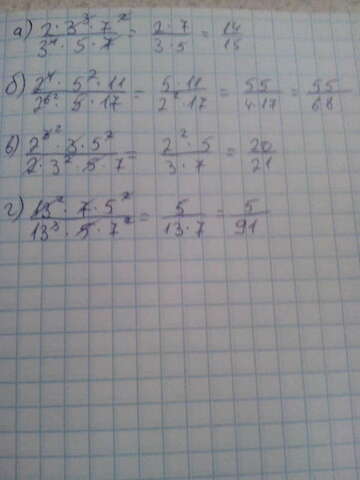 а) 2 · 3³ · 7² / 3⁴ · 5 · 7 = 2 · 7 / 3 · 5 = 14 / 15
б) 2⁴ · 5² · 11 / 2⁶ · 5 · 17 = 5 · 11 / 2² · 17 = 55 / 4 · 17 = 55 / 68
в) 2³ · 3 · 5² / 2 · 3² · 5 · 7 = 2² · 5 / 3 · 7 = 20 / 21
г) 13² · 7 · 5² / 13³ · 5 · 7² = 5 / 13 · 7 = 5 / 91